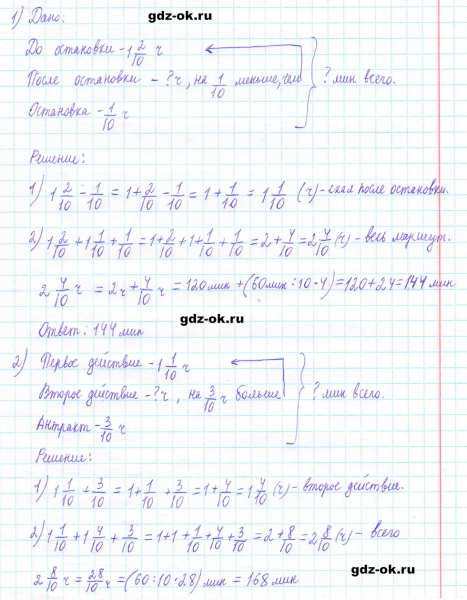 gdz-ok.ru
1) Дано:
До остановки - 1 2/10 ч
После остановки - ? ч, на 1/10 меньше, чем } ? мин всего.
Остановка - 1/10 ч
Решение:
1) 1 2/10 - 1/10 = 1 + 2/10 - 1/10 = 1 + 1/10 = 1 1/10 (ч) - ехал после остановки.
2) 1 2/10 + 1 1/10 + 1/10 = 1 + 2/10 + 1 + 1/10 + 1/10 = 2 + 4/10 = 2 4/10 (ч) - весь маршрут.
2 4/10 ч = 2ч + 4/10 ч = 120 мин + (60мин : 10 · 4) = 120 + 24 = 144 мин
gdz-ok.ru
Ответ: 144 мин
2) Первое действие - 1 1/10 ч
Второе действие - ? ч, на 3/10 ч больше } ? мин всего.
Антракт - 3/10 ч
Решение:
1) 1 1/10 + 3/10 = 1 + 1/10 + 3/10 = 1 + 4/10 = 1 4/10 (ч) - второе действие.
2) 1 1/10 + 1 4/10 + 3/10 = 1 + 1 + 1/10 + 4/10 + 3/10 = 2 + 8/10 = 2 8/10 (ч) - всего
2 8/10 ч = 28/10 ч = (60 : 10 · 28) мин = 168 мин
gdz-ok.ru